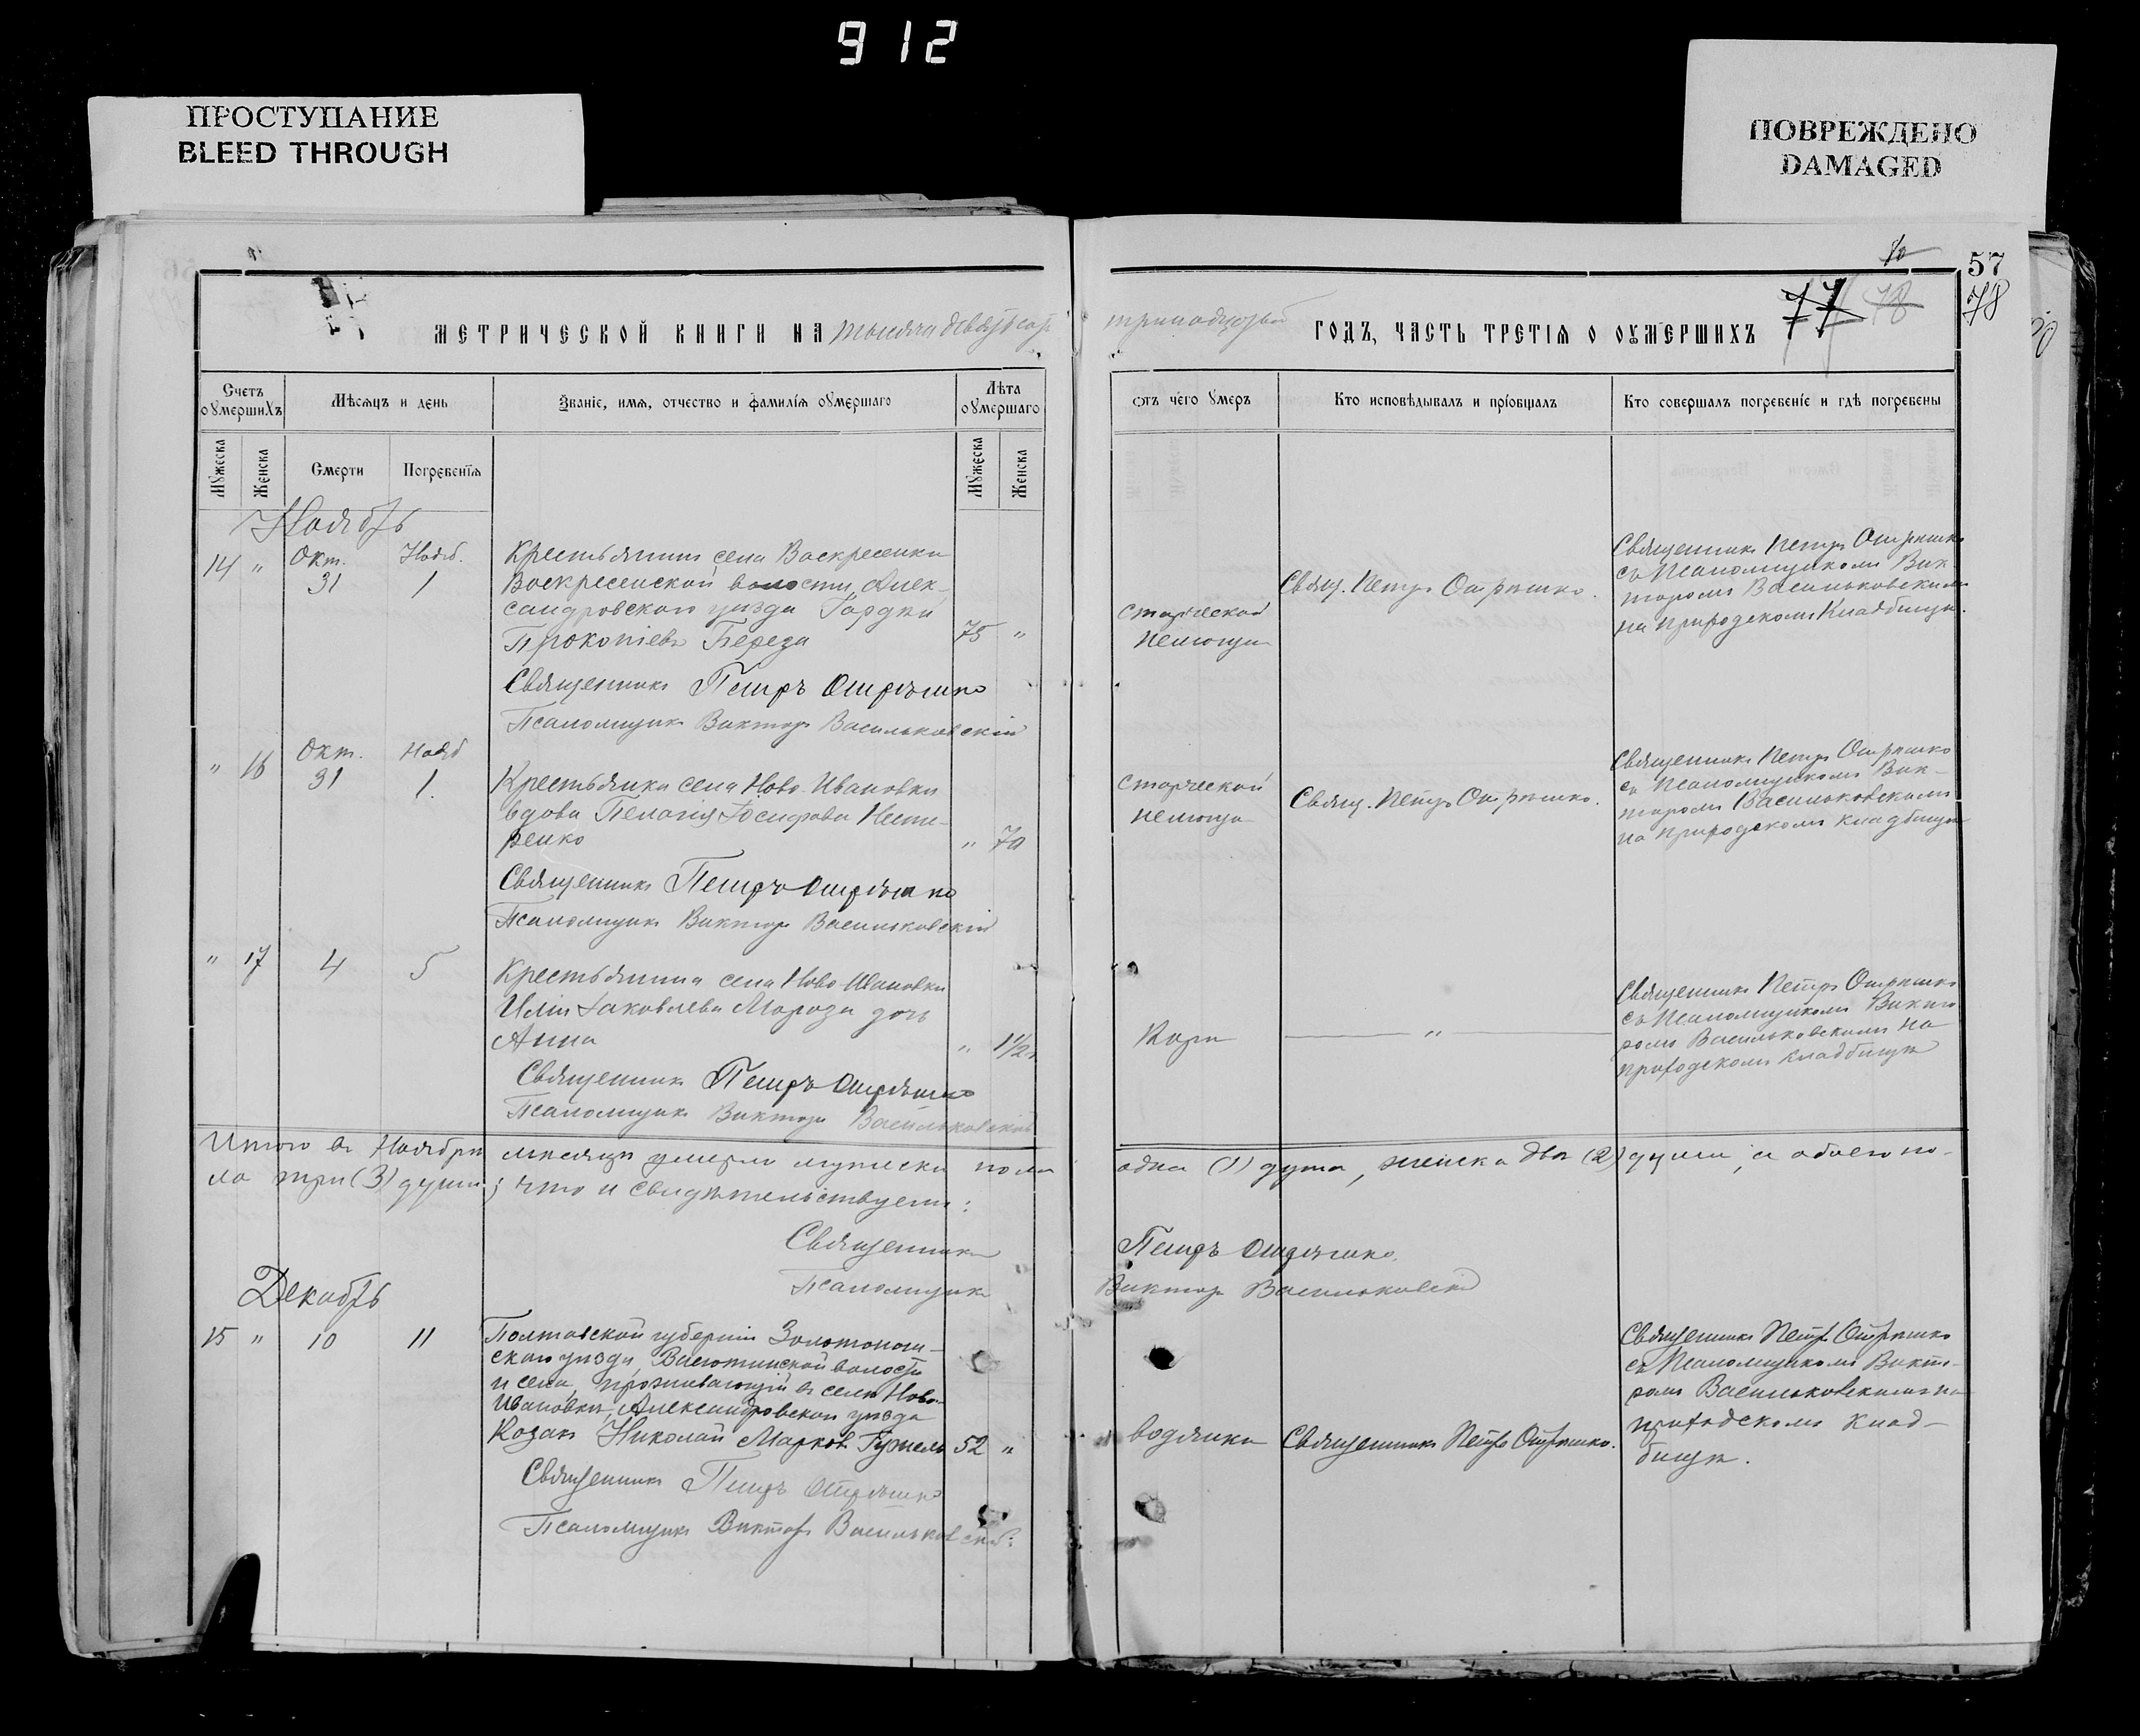 912
ПРОСТУПАНИЕ
BLEED THROUGH
ПОВРЕЖДЕНО
DAMAGED
57
78
77 78
МЕТРИЧЕСКОЙ КНИГИ НА тысяча девятсотъ
тринадцатый ГОДЪ, ЧАСТЬ ТРЕТІѦ О ОУМЕРШИХЪ
Счетъ оумершихъ
Мѣсѧцъ и день
Званіе, имѧ, отчество и фамиліѧ оумершаго
Лѣта оумершаго
Мужеска
Женска
Смерти
Погребеніѧ
Мужеска
Женска
Отъ чего умеръ
Кто исповѣдывалъ и пріобщалъ
Кто совершалъ погребеніе и гдѣ погребены
Ноябрь
14 " Окт. 31 Нояб. 1
Крестьянинъ села Воскресенки
Воскресенской волости, Алек-
сандровскаго уѣзда Гордѣй
Прокопіевъ Береза 75 "
Священникъ Петръ Отрѣшко
Псаломщикъ Викторъ Васильковскій
старческой
немощи
Свящ. Петръ Отрѣшко.
Священникъ Петръ Отрѣшко
съ Псаломщикомъ Вик-
торомъ Васильковскимъ
на приходскомъ кладбищѣ.
" 16 Окт. 31 Нояб 1.
Крестьянка села Ново-Ивановки
вдова Пелагія Іосифова Несте-
ренко " 70
Священникъ Петръ Отрѣшко
Псаломщикъ Викторъ Васильковскій
старческой
немощи
Свящ. Петръ Отрѣшко.
Священникъ Петръ Отрѣшко
съ Псаломщикомъ Вик-
торомъ Васильковскимъ
на приходскомъ кладбищѣ
" 17 4 5
Крестьянина села Ново-Ивановки
Иліи Іаковлева Мороза дочь
Анна " 1 1/2 г.
Священникъ Петръ Отрѣшко
Псаломщикъ Викторъ Васильковскій
Кори
"
Священникъ Петръ Отрѣшко
съ Псаломщикомъ Викто
ромъ Васильковскимъ на
приходскомъ кладбищѣ
Итого въ Ноябрѣ мѣсяцѣ умерло мужеска пола одна (1) душа, женска двѣ (2) души, а обоего по-
ла три (3) души; что и свидѣтельствуемъ:
Священникъ Петръ Отрѣшко.
Псаломщикъ Викторъ Васильковскій
Декабрь
15 " 10 11
Полтавской губерніи Золотонош-
скаго уѣзда, Васютинской волости
и села, проживающій въ селѣ Ново-
Ивановкѣ, Александровскаго уѣзда
Козакъ Николай Марковъ 52 "
Священникъ Петръ Отрѣшко
Псаломщикъ Викторъ Васильковскій.
водянки
Священникъ Петръ Отрѣшко.
Священникъ Петръ Отрѣшко
съ Псаломщикомъ Викто-
ромъ Васильковскимъ на
приходскомъ клад-
бищѣ.